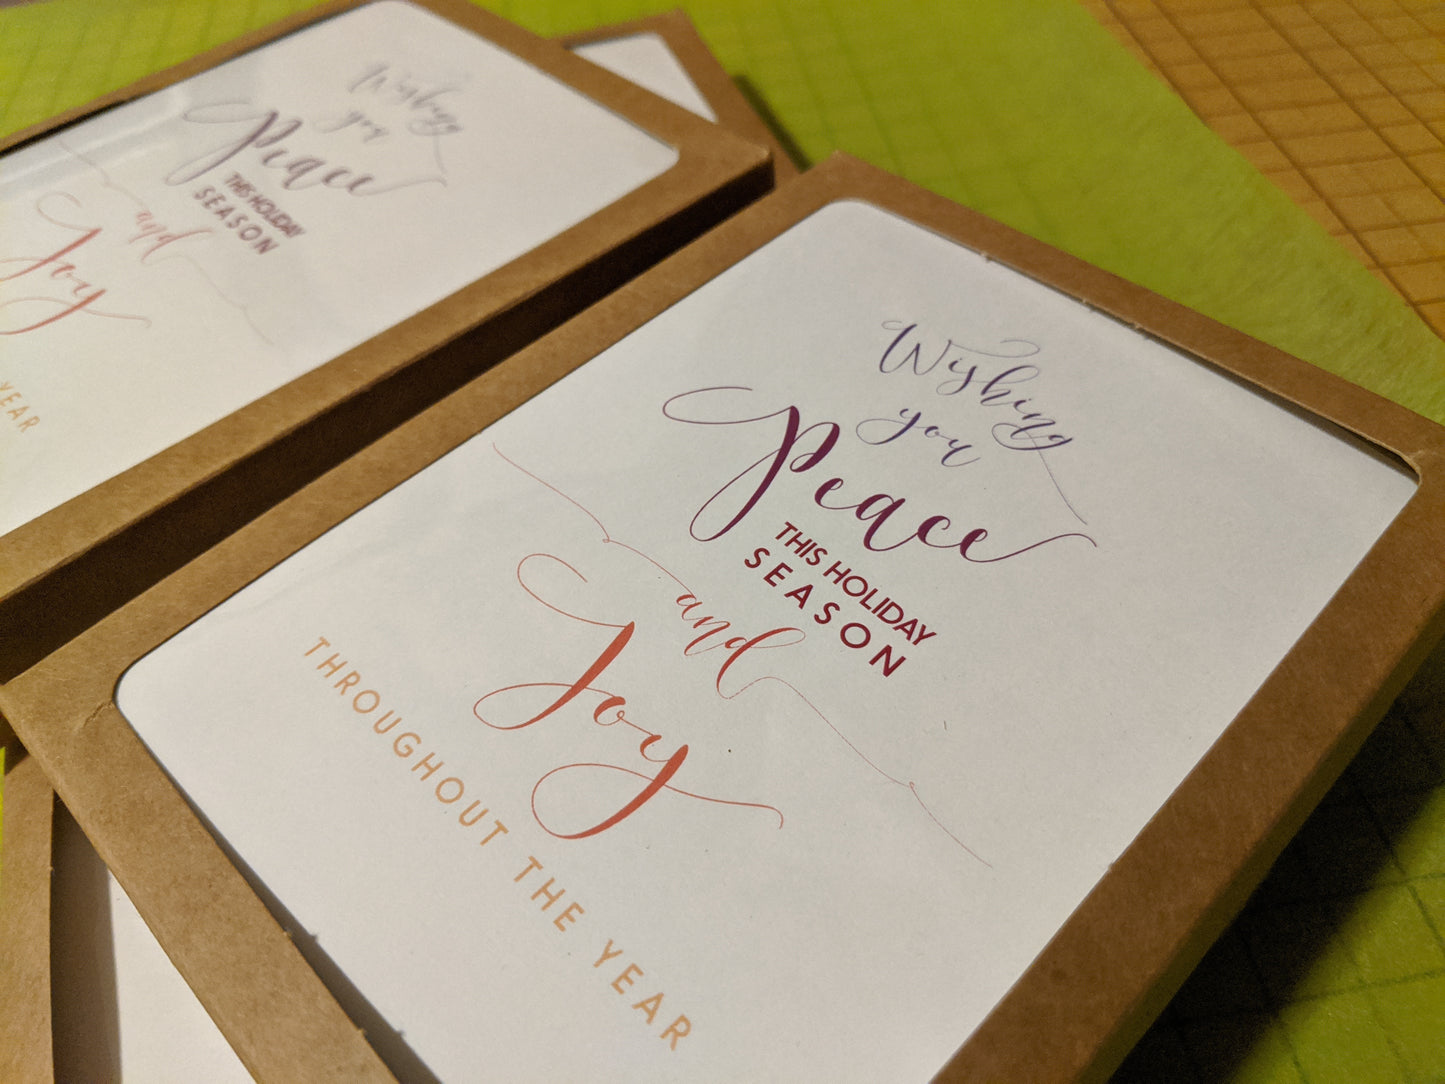 Wishing
you
Peace
THIS HOLIDAY
SEASON
and
Joy
THROUGHOUT THE YEAR
Wishing
you
Peace
THIS HOLIDAY
SEASON
and
Joy
YEAR